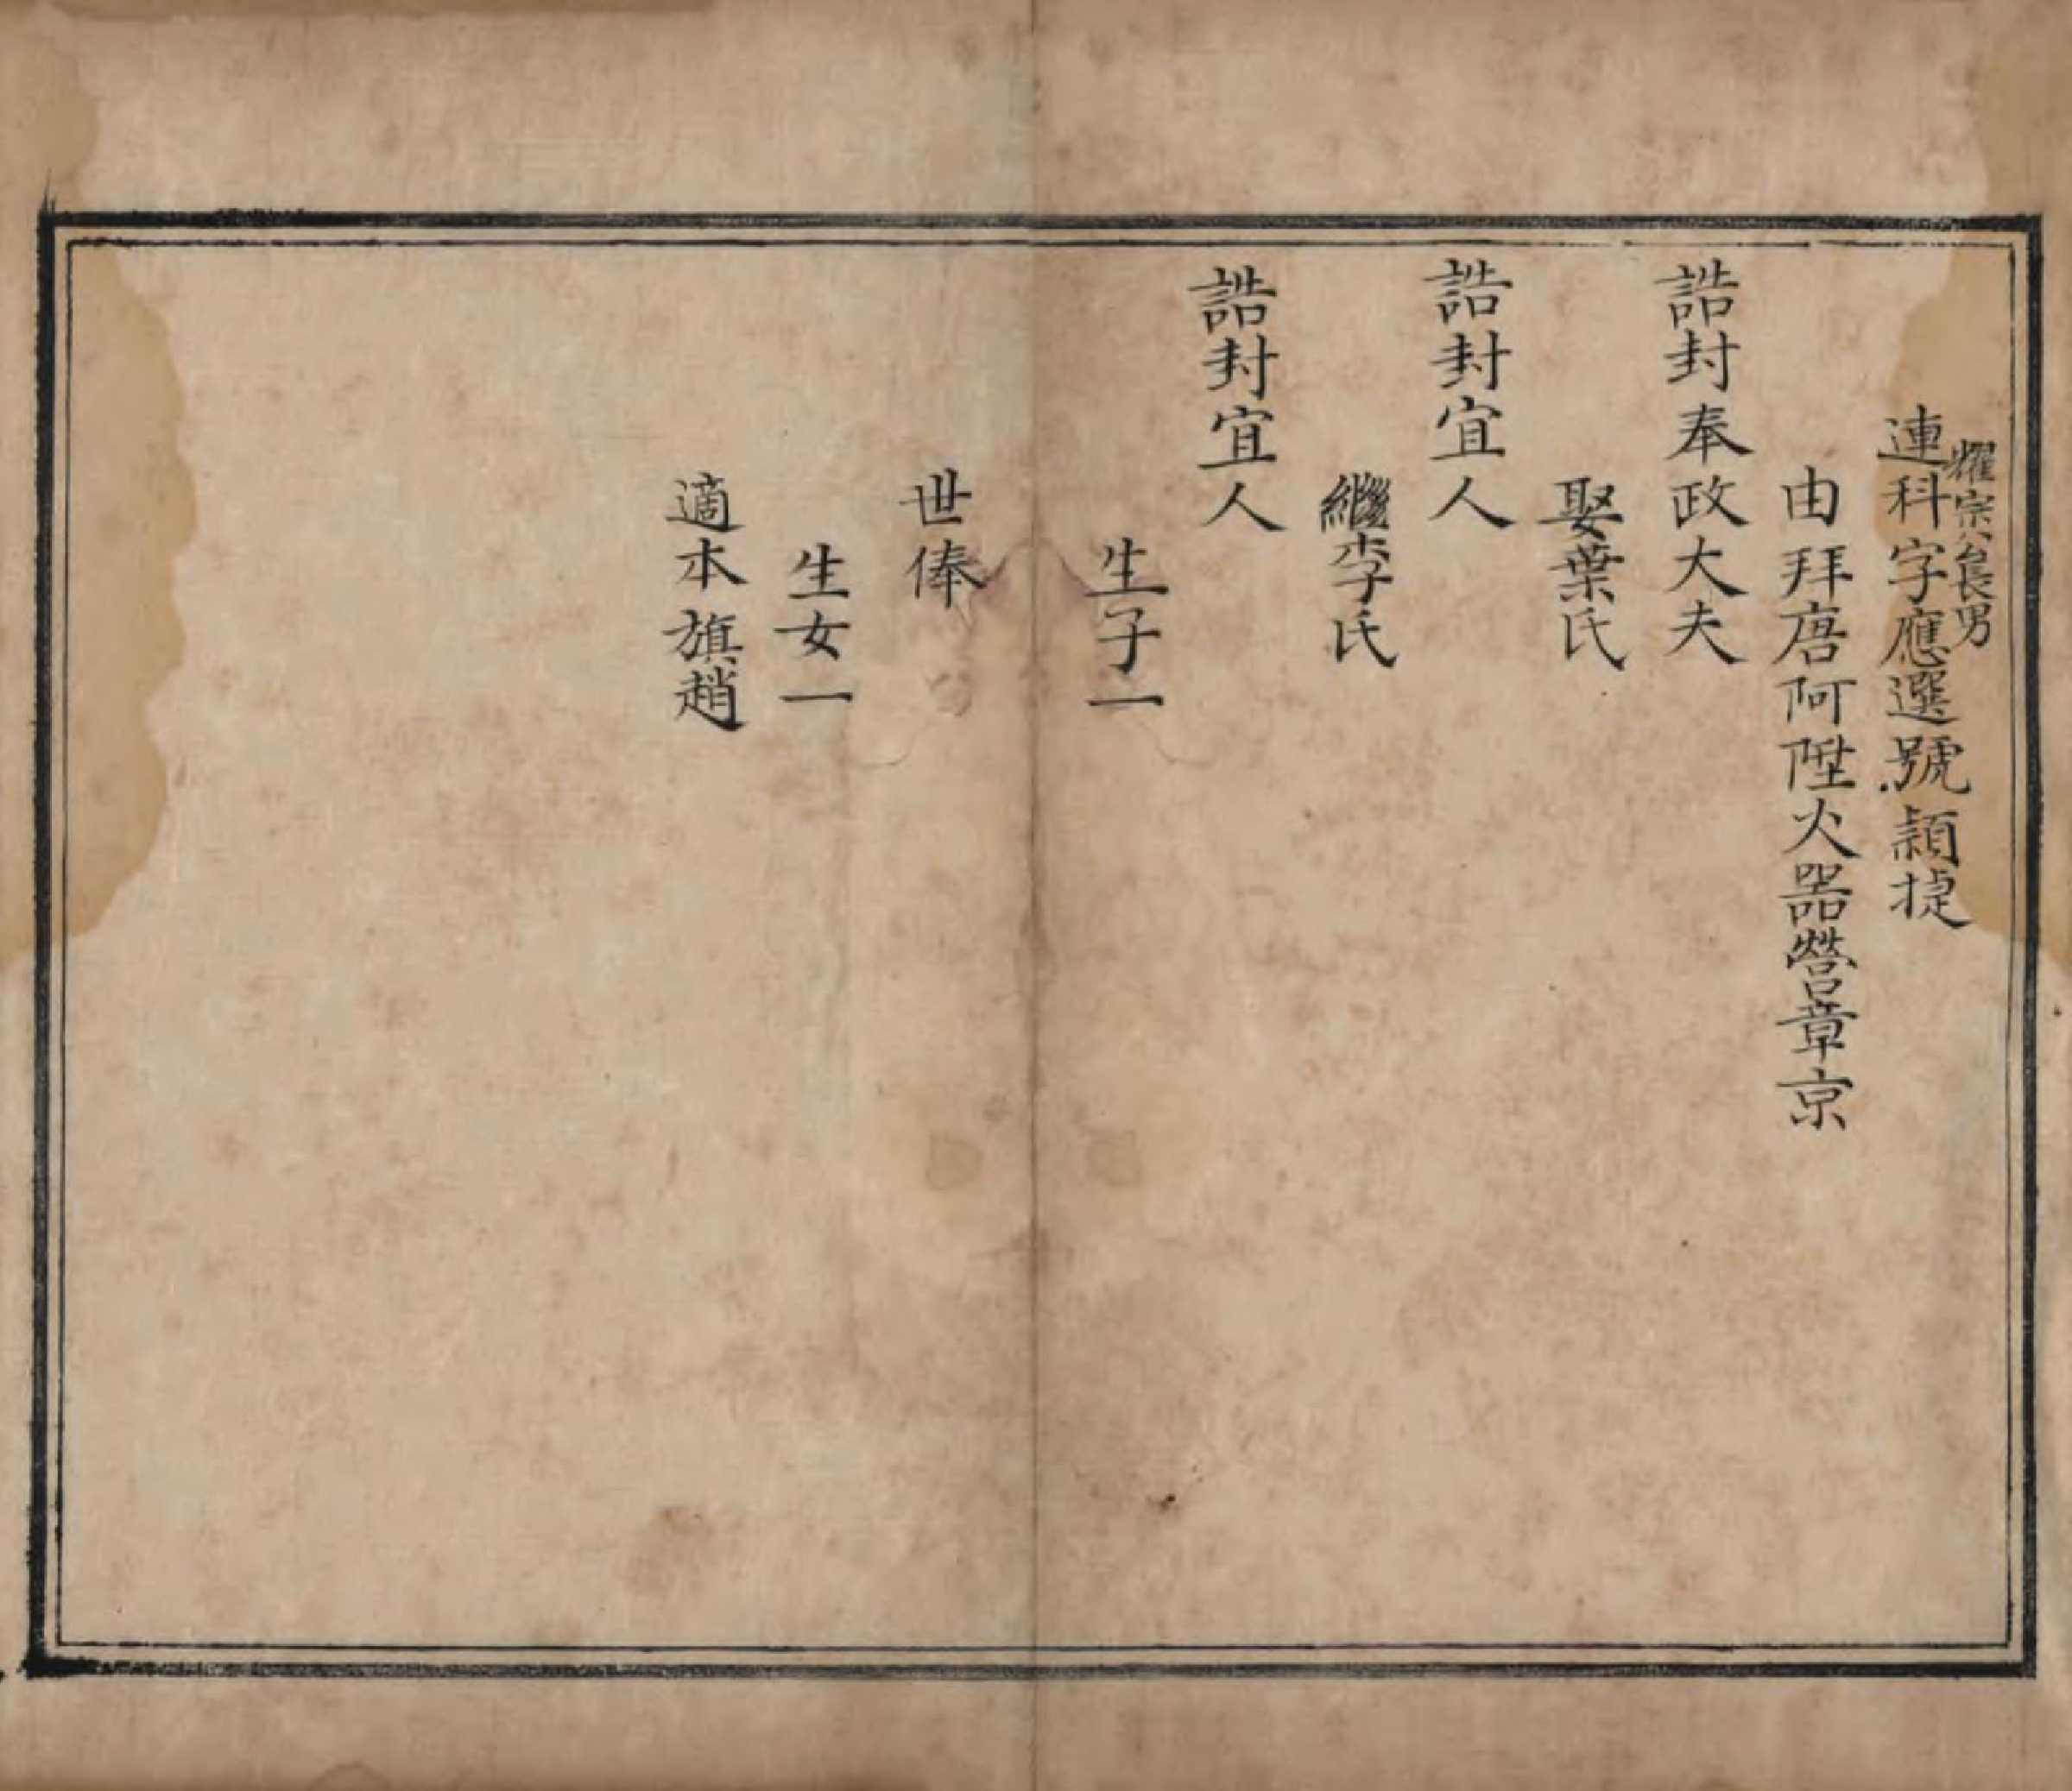 耀宗公長男
連科字應選號穎捷
由拜唐阿陞火器營章京
誥封奉政大夫
娶葉氏
誥封宜人
繼李氏
誥封宜人
生子一
世俸
生女一
適本旗趙